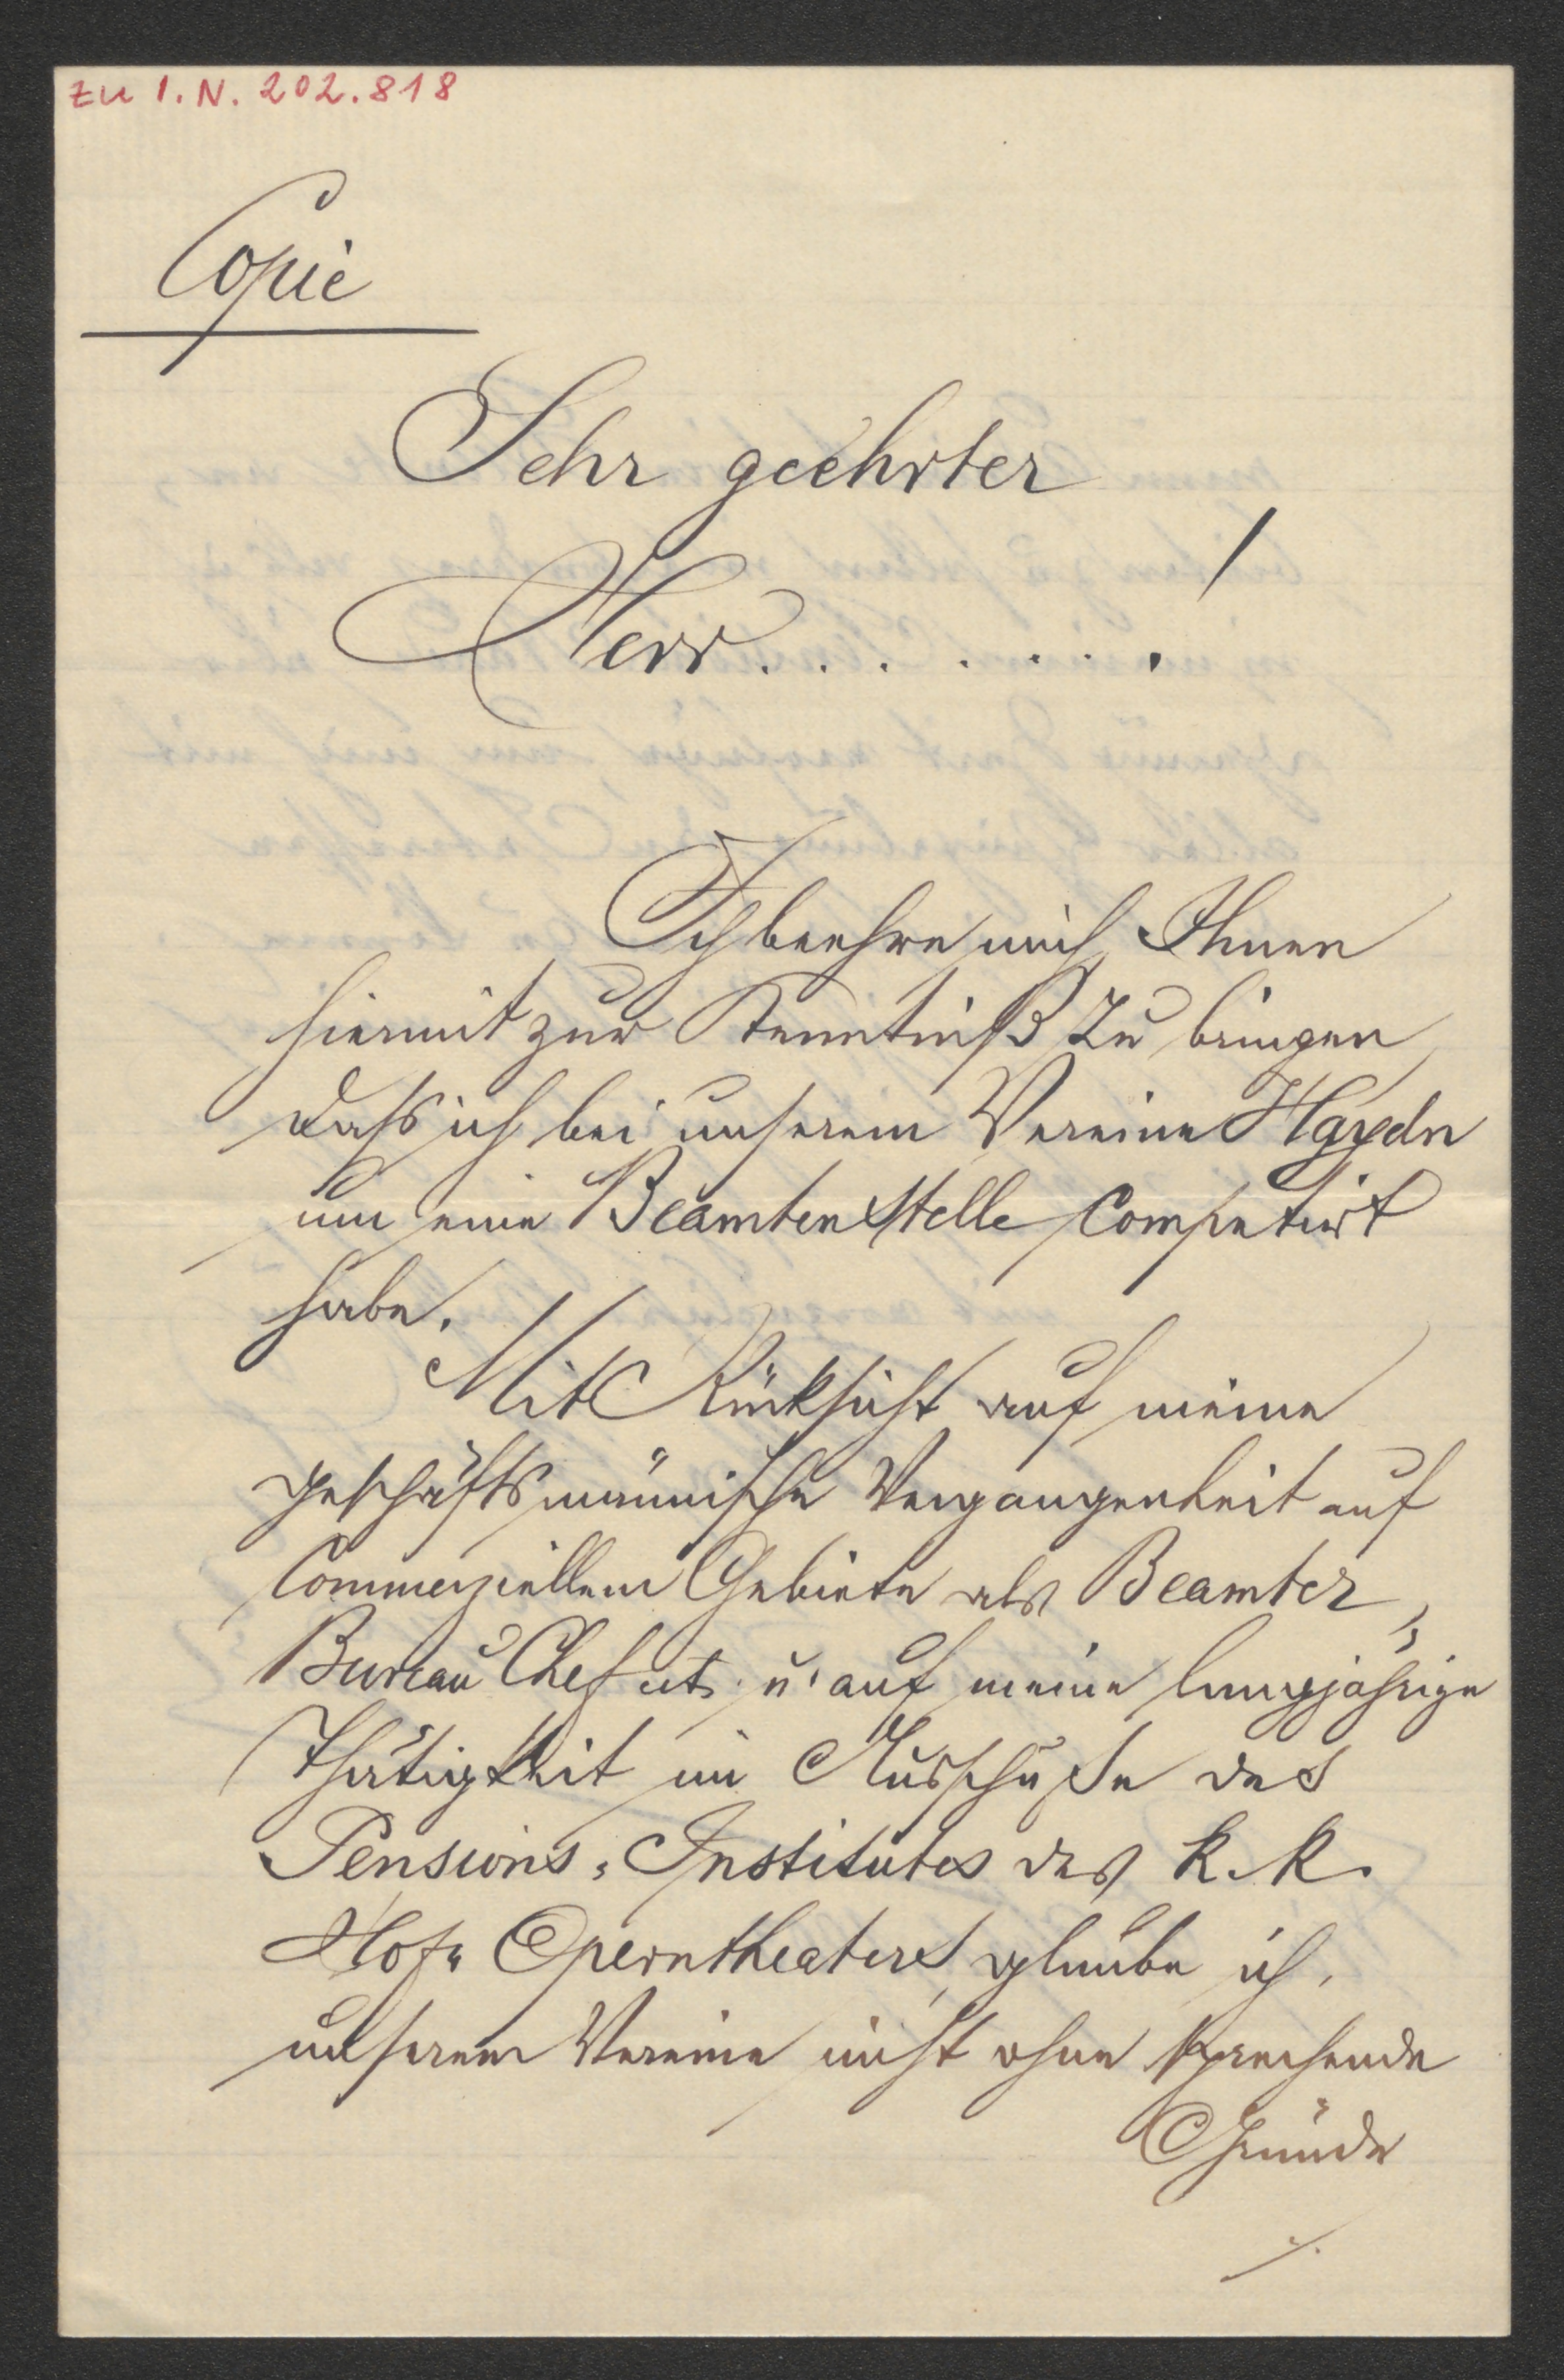 zu I.N. 202.818
Copie
Sehr geehrter
Herr . . . . . . . !
Ich beehre mich, Ihnen
hiermit zur Kenntniß zu bringen,
daß ich bei unserem Vereine Haydn
um eine Beamtenstelle competirt
habe.
Mit Rücksicht auf meine
geschäftsmännische Vergangenheit auf
commerziellem Gebiete als Beamter,
Bureau Chef etc. u. auf meine langjährige
Thätigkeit im Ausschuße des
Pensions-Institutes des k. k.
Hof-Operntheaters, glaube ich,
unserem Vereine nicht ohne sprechende
Gründe
./.